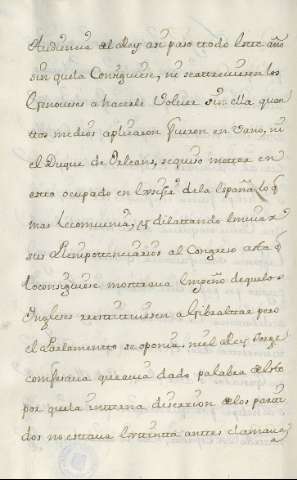 Audiencia del Rey asi paso todo este año
sin que la Consiguiese, ni se atreviesen los
Ginoveses a hacerle Volver sin ella quan
ttos medios aplicaron fueron en vano, ni
el Duque de Orleans, se quiso metter en
esto ocupado en de la España lo q̃
mas le combenia, es dilattando Imviar
sus Plenipotenciarios al Congreso asta q̃
lo consiguiese mostrava empeño de que los
Ingleses restituiesen a Gibralttar pero
el Parlamento se oponia, ni el Rey Jorge
confesava que avia dado palabra de esto
por que la interna desercion de los parti
dos no estava extinta antes clamava